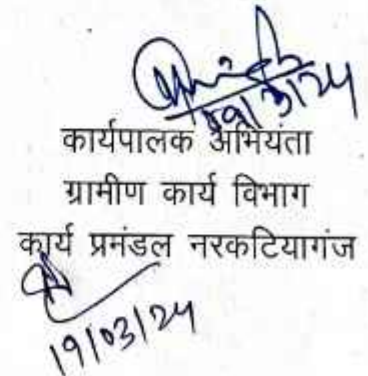 19/3/24
कार्यपालक अभियंता
ग्रामीण कार्य विभाग
कार्य प्रमंडल नरकटियागंज
19/03/24